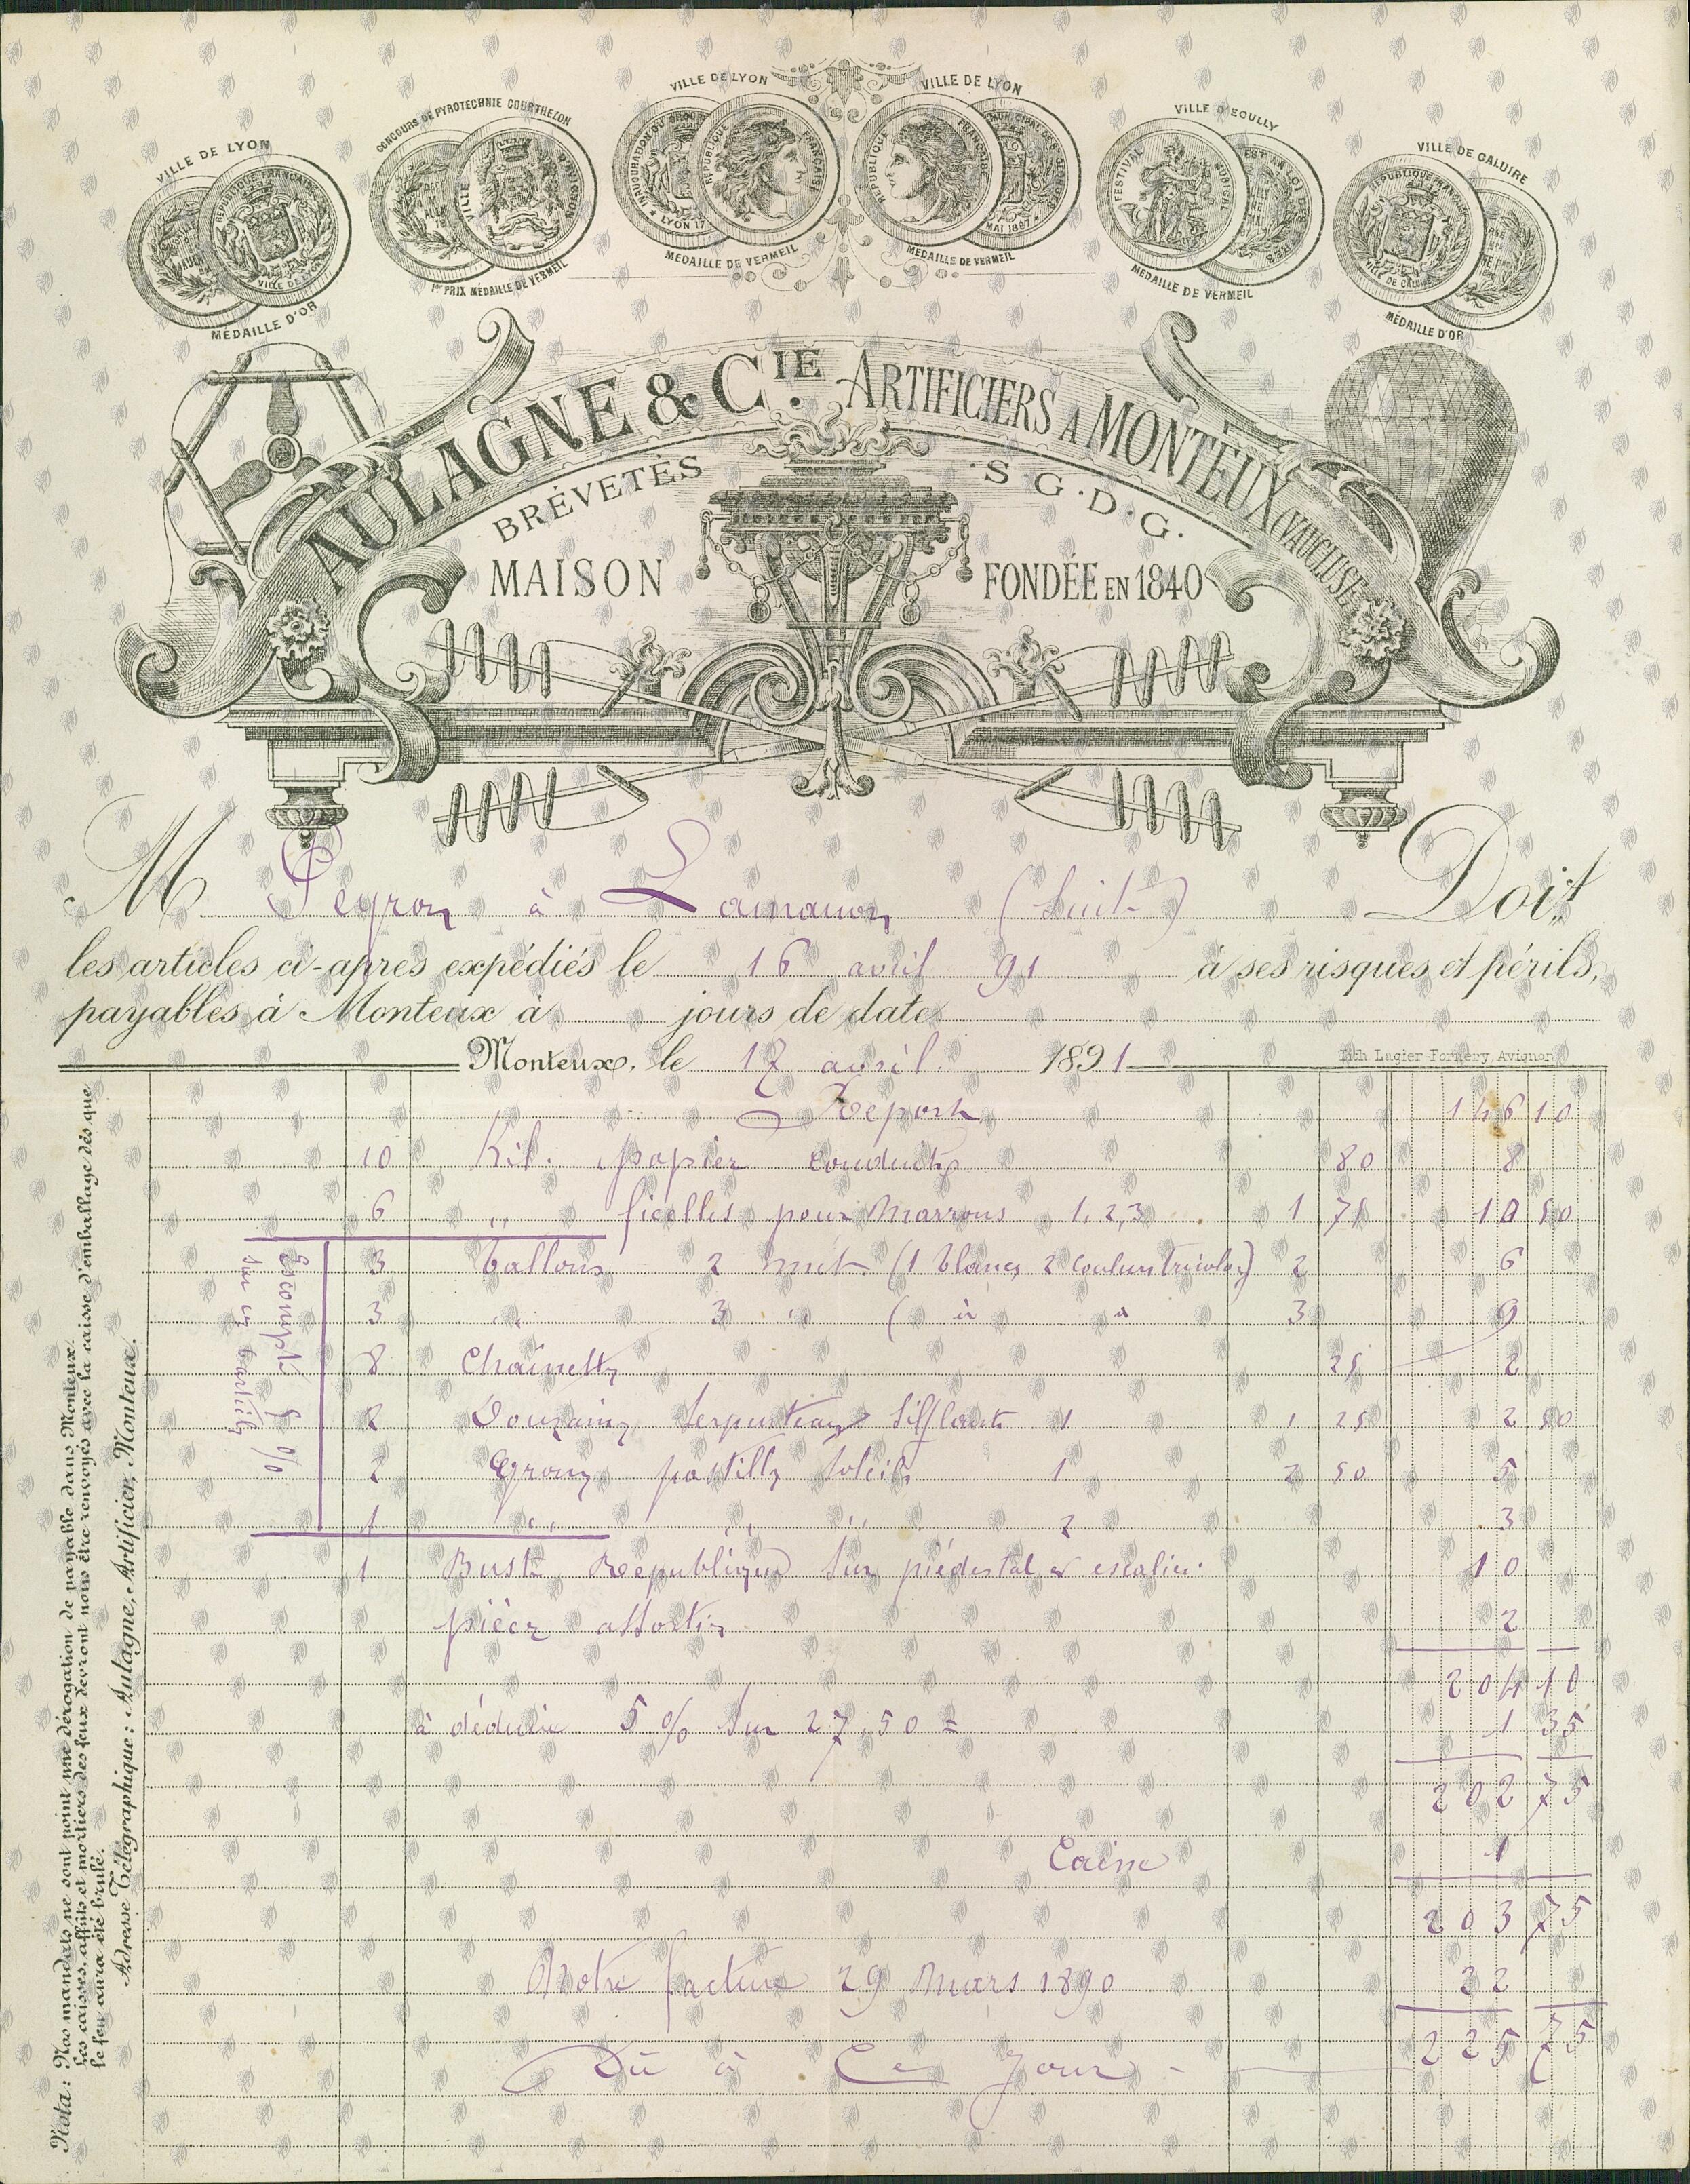 VILLE DE LYON
MÉDAILLE D'OR
CONCOURS DE PYROTECHNIE COURTHEZON
1er PRIX MÉDAILLE DE VERMEIL
VILLE DE LYON
MÉDAILLE DE VERMEIL
VILLE DE LYON
MÉDAILLE DE VERMEIL
VILLE D'ECULLY
MÉDAILLE DE VERMEIL
VILLE DE CALUIRE
MÉDAILLE D'OR
RÉPUBLIQUE FRANÇAISE
VILLE DE LYON
VILLE D'AVIGNON
RÉPUBLIQUE FRANÇAISE
RÉPUBLIQUE FRANÇAISE
FESTIVAL MUSICAL
AULAGNE & CIE. ARTIFICIERS A MONTEUX (VAUCLUSE)
BRÉVETÉS S.G.D.G.
MAISON FONDÉE EN 1840
M Peyron à Lamanon (Suite) Doit
les articles ci-après expédiés le 16 avril 91 à ses risques et périls,
payables à Monteux à jours de date
Monteux, le 17 avril 1891
Lith. Lagier-Fornery, Avignon
Report 146 10
10 Kil. papier conduits 80 8
6 " ficelles pour Marrons 1, 2, 3 1 75 10 50
3 ballons 2 met (1 blanc, 2 couleur tricolor) 2 6
3 " 3 " ( à " 3 9
8 Chainettes 25 2
2 Douzaines Serpenteaux Sifflants 1 1 25 2 50
2 Grosses pastilles Soleils 1 2 50 5
1 " " " 2 3
Escompte 5 %
sur ces articles
1 Buste République sur piédestal & escalier 10
pièces assorties 2
204 10
à déduire 5 % sur 27,50 = 1 35
202 75
Caisse 1
203 75
Notre facture 29 Mars 1890 22
Dû à Ce Jour - 225 75
Nota: Nos mandats ne sont point une dérogation de payable dans Monteux.
Les caisses, affûts et mortiers des feux devront nous être renvoyés avec la caisse d'emballage dès que
le feu aura été brulé.
Adresse Télégraphique: Aulagne, Artificier, Monteux.